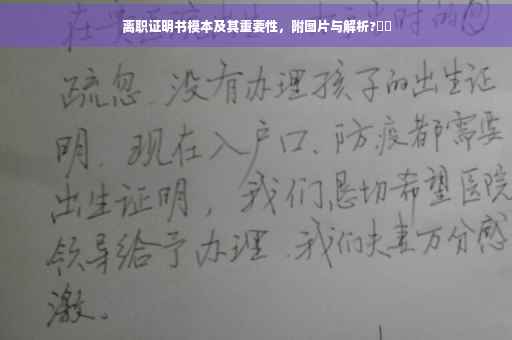 离职证明书模本及其重要性，附图片与解析?
疏忽、没有办理孩子的出生证
明、现在入户口、防疫都需要
出生证明，我们恳切希望医院
领导给予办理、我们夫妻万分感
激。